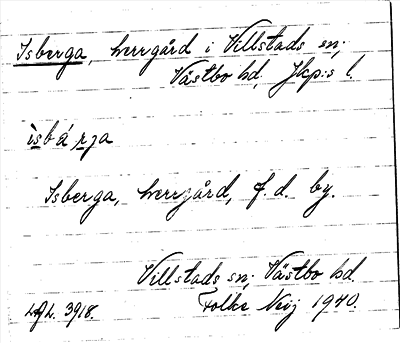 Isberga, herrgård i Villstads sn;
Västbo hd, Jkp:s l.
ìsbá rja
Isberga, herrgård, f. d. by.
Villstads sn; Västbo hd.
Folke Neij 1940.
3918.